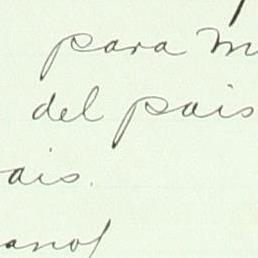 para m
del pais
ais.
anos